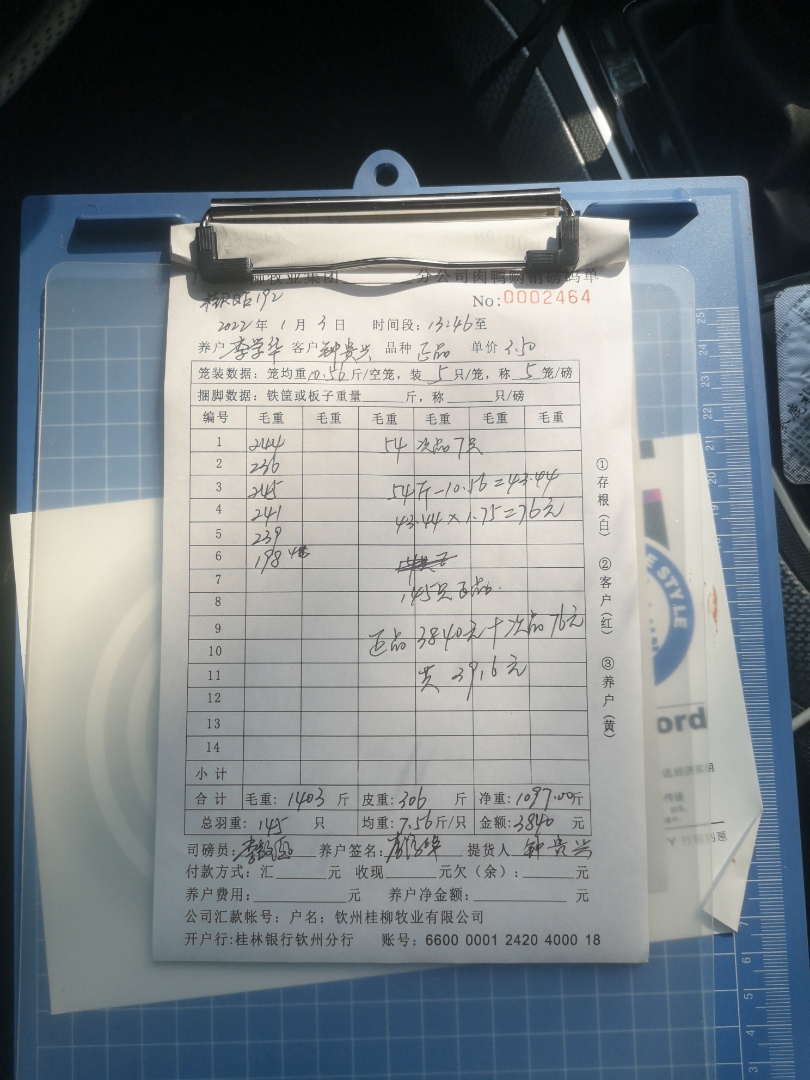 牧业集团 分公司肉鸭购销磅码单
192 No:0002464
2022年1月3日 时间段:13:46至
养户 李学华 客户 钟贵兴 品种 正品 单价 3.50
笼装数据:笼均重10.56斤/空笼,装5只/笼,称5笼/磅
捆脚数据:铁筐或板子重量 斤,称 只/磅
编号 毛重 毛重 毛重 毛重 毛重 毛重
1 244 54 次品7只
2 236
3 245 54斤-10.56=43.44
4 241 43.44×1.75=76元
5 239
6 198
7
8 145只正品.
9 正品3840元+次品76元
10
11 共 3916元
12
13
14
小计
合计 毛重:1403斤 皮重:306斤 净重:1097.00斤
总羽重:145只 均重:7.56斤/只 金额:3840元
司磅员: 养户签名:李学华 提货人 钟贵兴
付款方式:汇 元 收现 元欠(余): 元
养户费用: 元 养户净金额: 元
公司汇款帐号:户名:钦州桂柳牧业有限公司
开户行:桂林银行钦州分行 账号:6600 0001 2420 4000 18
①存根(白) ②客户(红) ③养户(黄)
E STYLE
ord
25
24
23
22
21
20
19
7
6
5
4
3